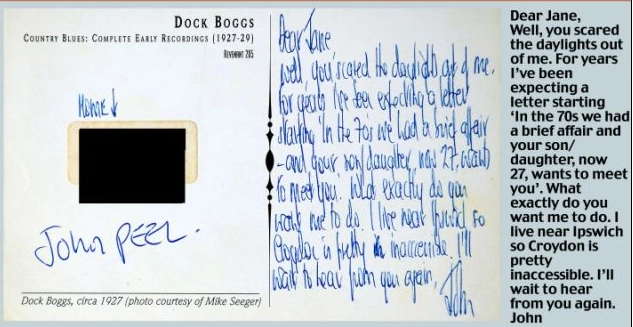 DOCK BOGGS
COUNTRY BLUES: COMPLETE EARLY RECORDINGS (1927-29)
REVENANT 205
JOHN PEEL.
Dock Boggs, circa 1927 (photo courtesy of Mike Seeger)
Dear Jane
Well, you scared the daylights out of me.
For years I've been expecting a letter
starting 'In the 70s we had a brief affair
- and your son/daughter, now 27, wants
to meet you'. What exactly do you
want me to do. I live near Ipswich so
Croydon is pretty inaccessible. I'll
wait to hear from you again,
John
Dear Jane,
Well, you scared
the daylights out
of me. For years
I've been
expecting a
letter starting
‘In the 70s we had
a brief affair and
your son/
daughter, now
27, wants to meet
you’. What
exactly do you
want me to do. I
live near Ipswich
so Croydon is
pretty
inaccessible. I'll
wait to hear
from you again.
John